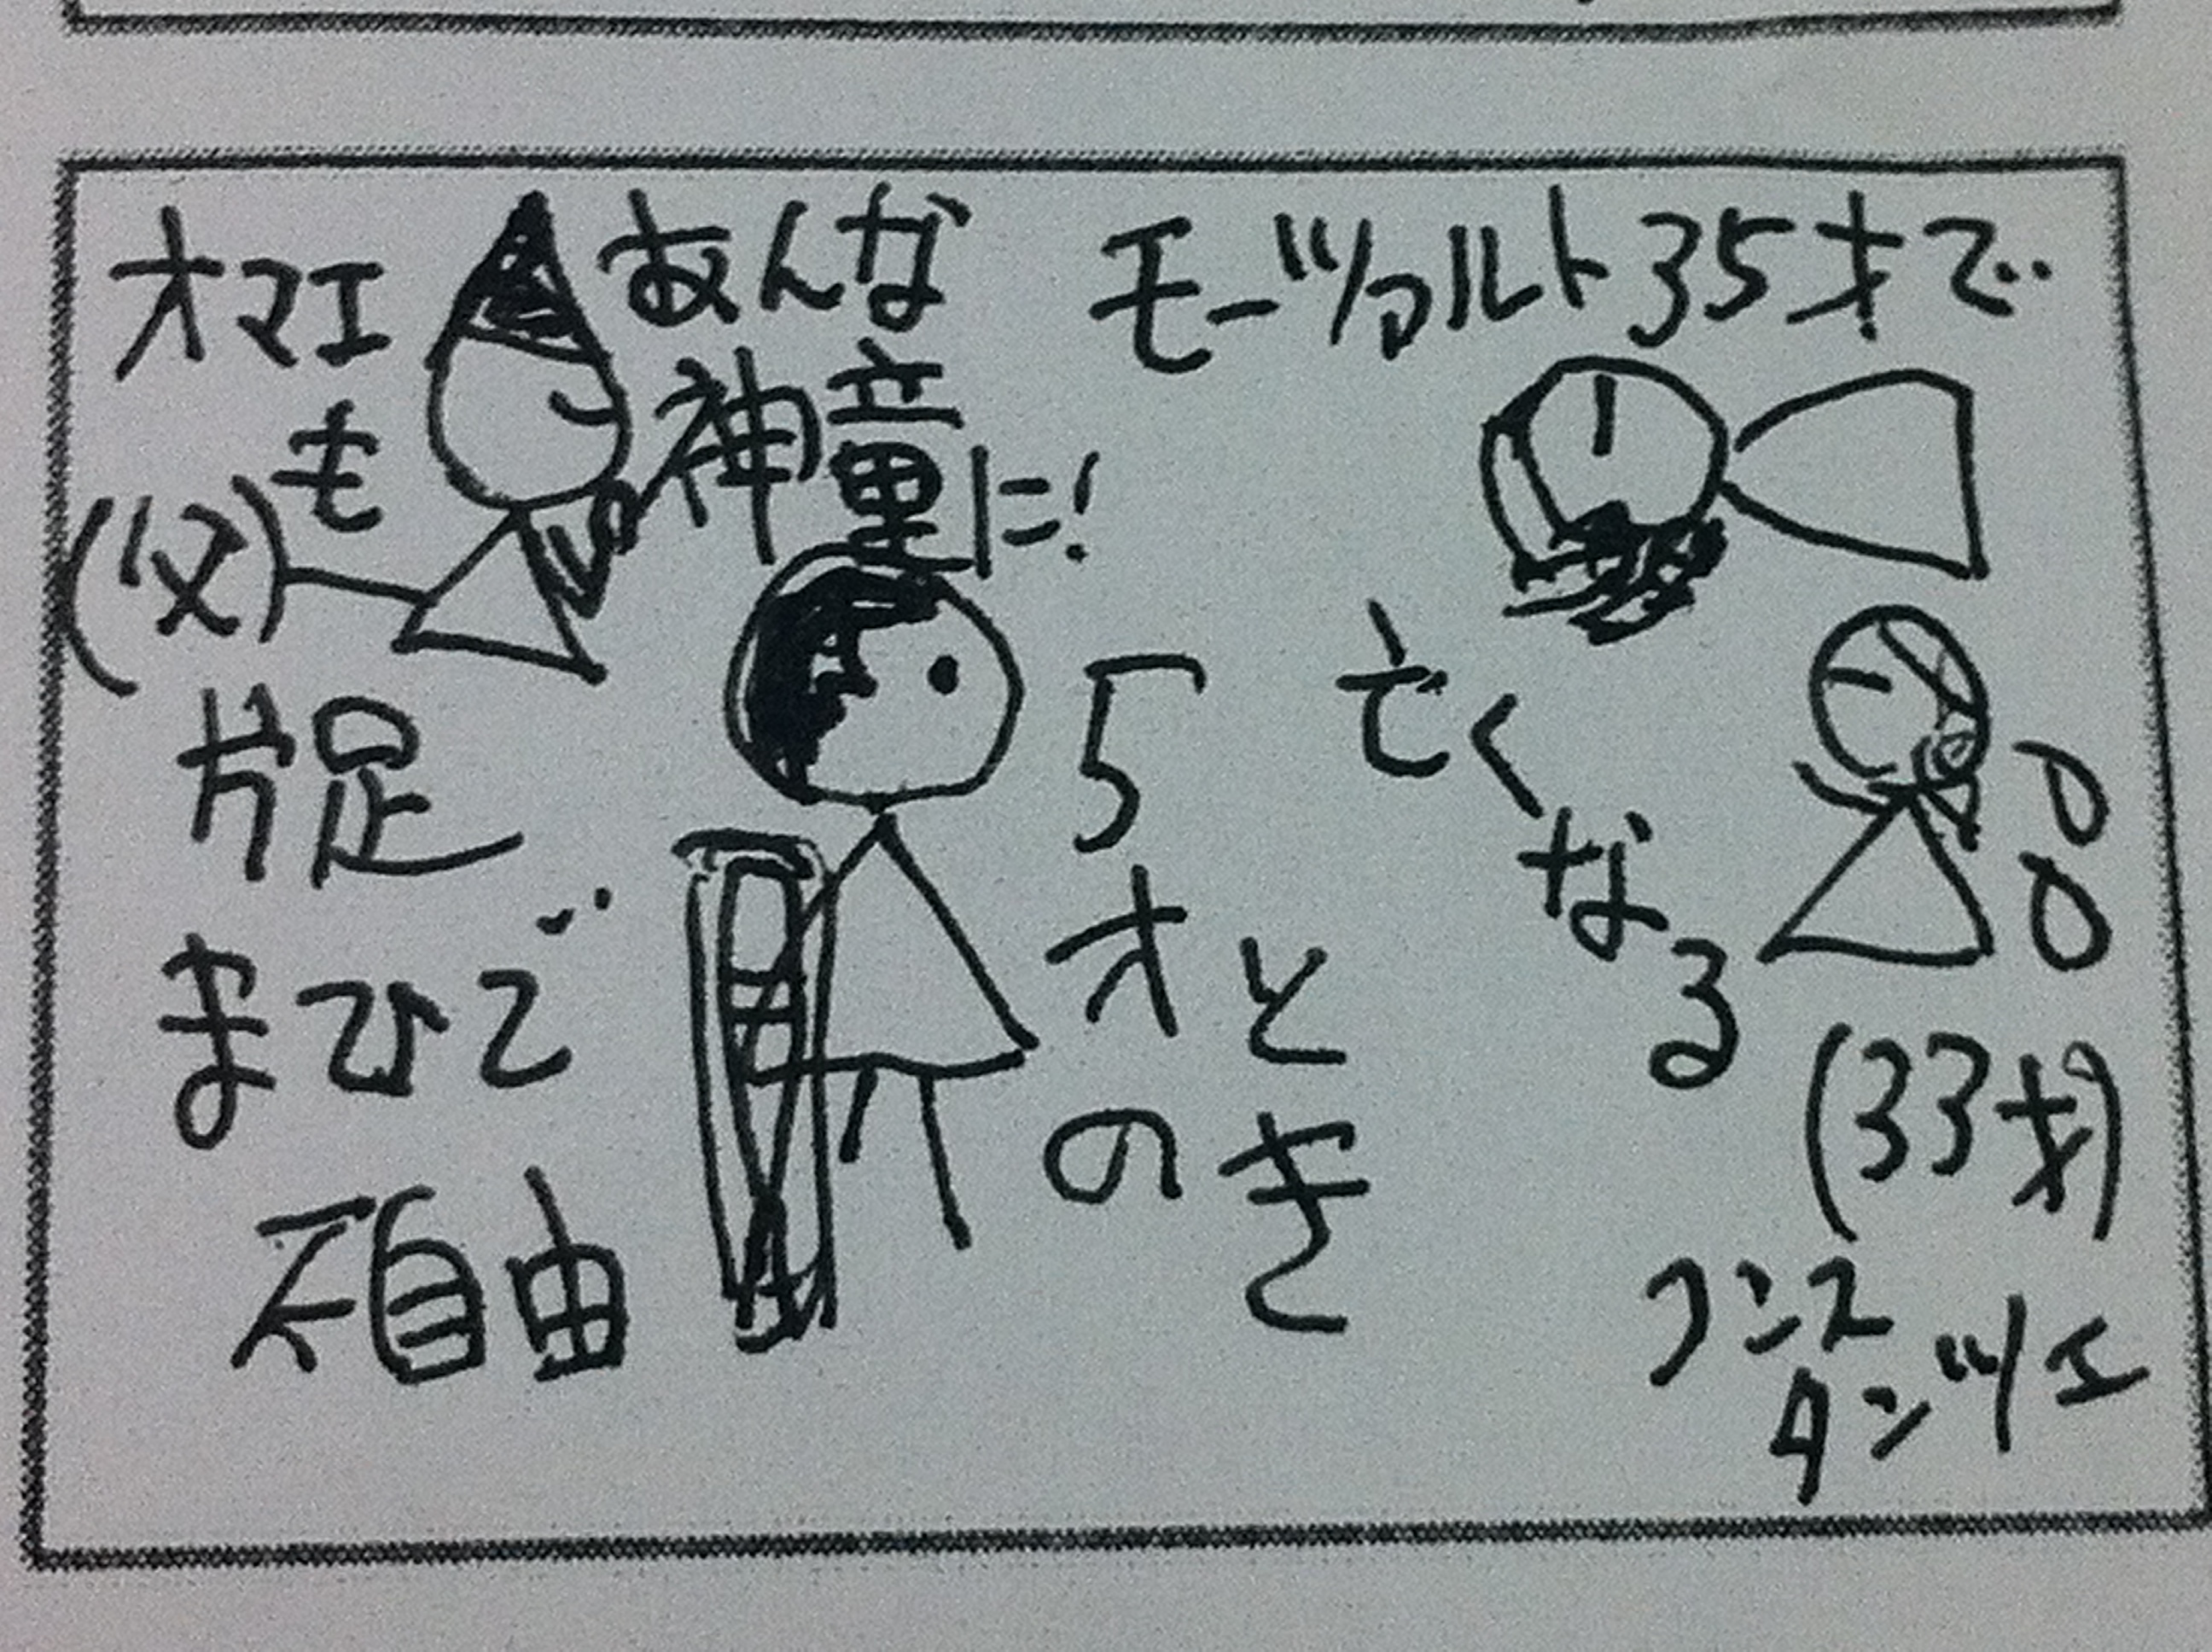 モーツァルト35才で
亡くなる
(33才)
コンス
タンツェ
5才
のとき
オマエも
あんな
神童に!
(父)
片足
まひで
不自由